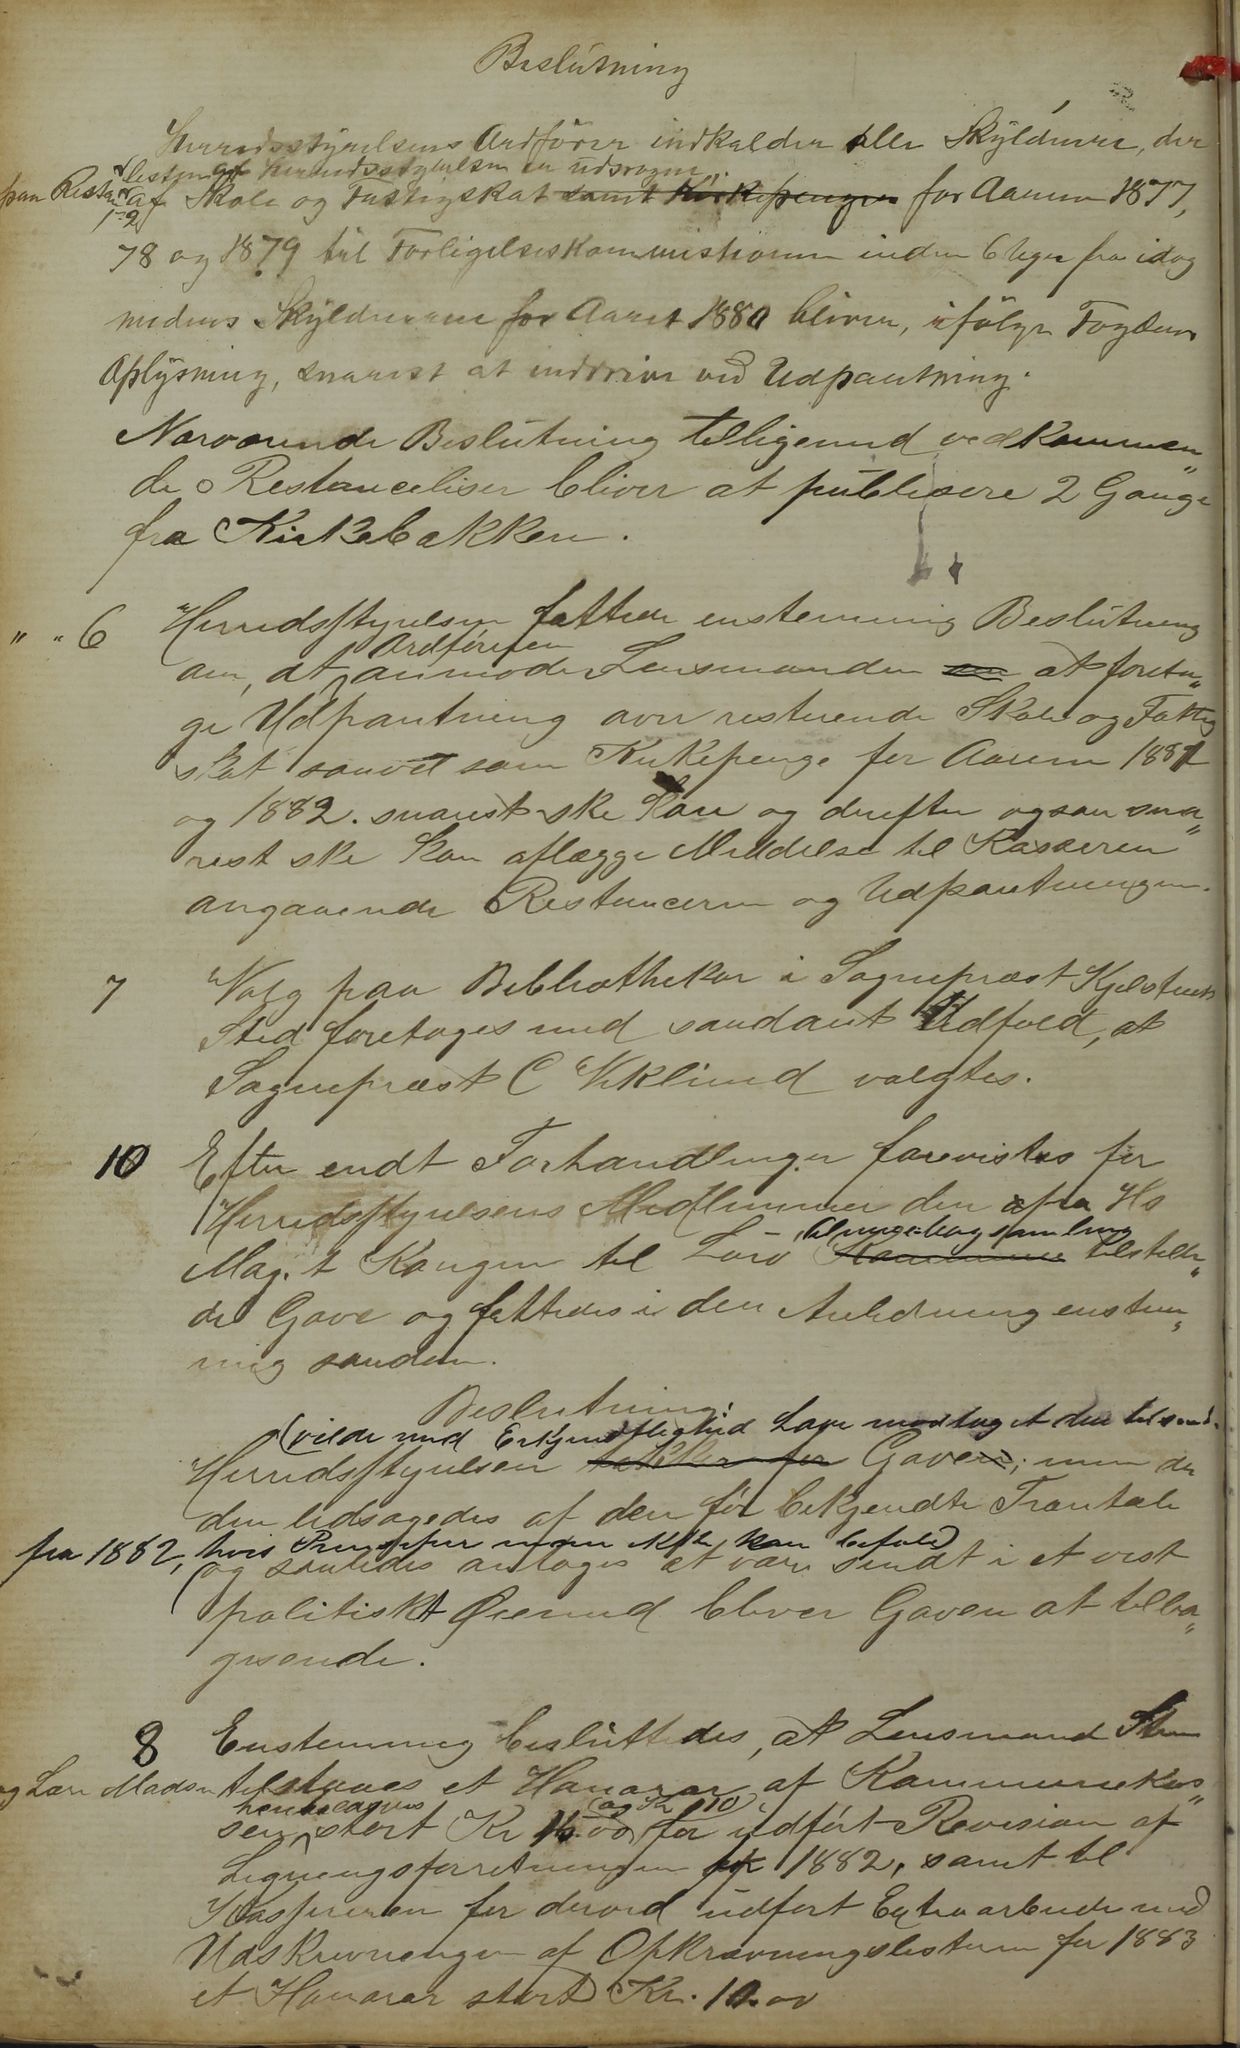 Beslutning
Herredsstyrelsens Ordfører indkalder alle Skyldnere, der
listen af Herredsstyrelsen er udvogne
paa Restan
af Skole og Fattigskat samt Kirkepenger for Aarene 1877,
78 og 1879 til Forligelseskommissionen inden 6 Uger fra idag
medens Skyldnerne for Aaret 1880 bliver, ifölge Fogdens
Oplysning, snarest at inddrive ved Udpantning.
Nærværende Beslutning tilligemed vedkommen„
de Restanceliser bliver at publisere 2 Gange
fra Kirkebakken.
" " 6 Herredsstyrelsen fattede enstemmig Beslutning
Ordføreren
om, at anmode Lensmanden at foreta„
ge Udpantning over resterende Skole og Fattig
skat saavel som Kirkepenge for Aarene 1881
og 1882. snarest ske kan og derefter ogsaa sna„
rest ske kan aflægge Meddelse til Kassereren
angaaende Restancerne og Udpantningen.
7 Valg paa Bibliothekar i Sognepræst Kjelstrups
Sted foretoges med saadant Udfald, at
Sognepræst C Viklund valgtes.
10 Efter endt Forhandlinger forevistes for
Herredsstyrelsens Medlemmer den fra Hs
almuebogsamling
Maj. t Kongen til Loro Kommune tilstille„
de Gave og fattedes i den Anledning enstem„
mig saadan.
Beslutning:
(vilde med Erkjendtlighed have modtaget den tilsend.
Herredsstyrelsen takker for Gaven; men da
den ledsagedes af den før bekjendte Trontale
fra 1882, hvis Prinsiper man ikke kan befolde
og saaledes antages at være sendt i et vist
politiskt Øiemed bliver Gaven at tilba„
gesende.
8 Enstemmig besluttedes, at Lensmand
og Lars Madsen tilstaaes et Honorar af Kommunekas„
henholdsvis
og Kr 10
sen stort Kr 15.00 for udført Revision af
Ligningsforretningen for 1882, samt til
Kassereren for derved udført Extraarbeide med
Udskrivningen af Opkrævningslisterne for 1883
et Honorar stort Kr. 10.00